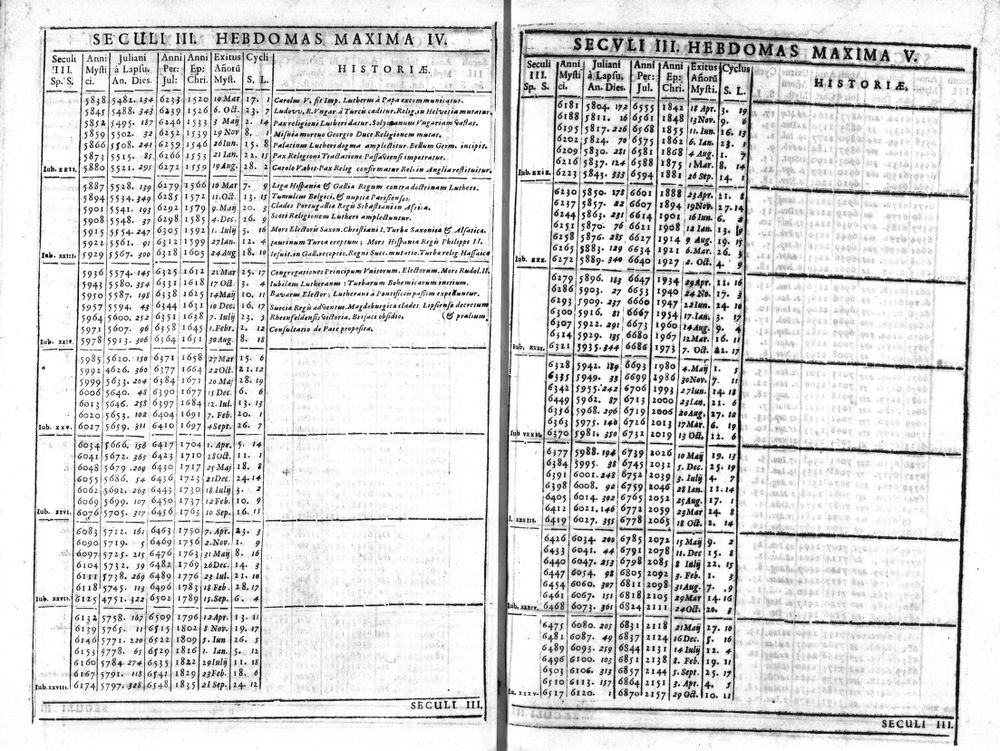 SECULI III. HEBDOMAS MAXIMA IV.
Seculi Anni Juliani Anni Anni Exitus Cycli
III. Mysti à Lapsu, Per: Ep: Añorũ HISTORIÆ.
Sp. S. ci. An. Dies. Jul: Chri. Myst. S. L.
5838 5482. 134 6233 1520 10 Mar 17. 1 Carolus V. fit Imp. Lutherus à Papa excommunicatur.
5845 5488. 343 6239 1526 6. Oct. 23. 7
5852 5495. 187 6246 1533 3 Maij 2. 14
5859 5502. 32 6252 1539 29 Nov 8. 1
5866 5508. 241 6259 1546 26 Iun. 15. 8
5873 5515. 85 6266 1553 21 Ian. 22. 15
Iub. XXII. 5880 5521. 295 6272 1559 19 Aug. 28. 2
5887 5528. 139 6279 1566 16 Mar 7. 9
5894 5534. 349 6285 1572 11. Oct. 13. 15
5901 5541. 193 6292 1579 9 Maij 20. 3
5908 5548. 37 6298 1585 4. Dec. 26. 9
5915 5554. 247 6305 1592 1. Iulij 5. 16
5922 5561. 91 6312 1599 27 Ian. 12. 4
Iub. XXIII. 5929 5567. 300 6318 1605 24 Aug 18. 10
5936 5574. 145 6325 1612 21 Mar 25. 17
5943 5580. 354 6331 1618 17 Oct. 3. 4
5950 5587. 198 6338 1625 14 Maij 10. 11
5957 5594. 43 6344 1631 10 Dec. 16. 17
5964 5600. 252 6351 1638 7. Iulij 23. 5
5971 5607. 96 6358 1645 1. Febr. 2. 12 Consultatio de Pace proposita.
Iub. XXIV. 5978 5913. 306 6364 1651 30 Aug. 8. 18
5985 5620. 150 6371 1658 27 Mar 15. 6
5992 4626. 360 6377 1664 22 Oct. 21. 12
5999 5633. 204 6384 1671 20 Maij 28. 19
6006 5640. 48 6390 1677 15 Dec. 6. 6
6013 5646. 258 6397 1684 12. Iul. 13. 13
6020 5653. 102 6404 1691 7. Feb. 20. 1
Iub. XXV. 6027 5659. 311 6410 1697 4 Sept. 26. 7
6034 5666. 158 6417 1704 1. Apr. 5. 14
6041 5672. 365 6423 1710 28 Oct. 11. 1
6048 5679. 209 6430 1717 25 Maij 18. 8
6055 5686. 54 6436 1723 21 Dec. 24. 14
6062 5692. 263 6443 1730 18 Iulij 3. 2
6069 5699. 107 6450 1737 12 Feb. 10. 9
Iub. XXVI. 6076 5705. 317 6456 1763 10 Sep. 16. 15
6083 5712. 161 6463 1750 7. Apr. 23. 3
6090 5719. 5 6469 1756 2. Nov. 1. 9
6097 5725. 215 6476 1763 31 Maij 8. 16
6104 5732. 59 6482 1769 26 Dec. 14. 3
6111 5738. 269 6489 1776 23 Iul. 21. 10
6118 5745. 113 6496 1783 18 Feb. 28. 17
Iub. XXVII. 8125 4751. 322 6502 1789 15. Sep. 6. 4
6132 5758. 167 6509 1796 12 Apr. 13. 11
6139 5765. 11 6515 1802 8 Nov. 19. 17
6146 5771. 220 6522 1809 5. Iun 26. 5
6153 5778. 65 6529 1816 1. Ian. 5. 12
6160 5784 274 6535 1822 29 Iulij 11. 18
6167 5791. 118 6541 1829 23 Feb. 18. 6
Iub. XXVIII. 6174 5797. 328 6548 1835 21 Sep. 24. 12
SECULI III.
SECVLI III. HEBDOMAS MAXIMA V.
Seculi Anni Juliani Anni Anni Exitus Cyclus
III. Mysti à Lapsu, Per: Ep: Añorũ HISTORIÆ.
Sp. S. ci. An. Dies. Jul: Chri. Mysti. S. L.
6181 5804. 172 6555 1842 18 Apr. 3. 19
6188 5811. 16 6561 1848 13 Nov. 9. 6
6195 5817. 226 6568 1855 11. Iun. 16. 13
6202 5824. 70 6575 1862 6. Ian. 23. 1
6209 5830. 281 6581 1868 4 Aug. 1. 7
6216 5837. 124 6588 1875 1 Mar. 8. 14
Iub. XXIX. 6223 5845. 333 6594 1881 26 Sep. 14. 1
6230 5850. 178 6601 1888 23 Apr. 21. 8
6237 5857. 22 6607 1894 19 Nov. 27. 14
6244 5863. 231 6614 1901 16 Iun. 6. 2
6251 5870. 76 6621 1908 12 Ian. 13. 9
6258 5876. 285 6627 1914 9 Aug. 19. 15
6265 5883. 129 6634 1921 6 Mar. 26. 3
Iub. XXX. 6272 5889. 340 6640 1927 2. Oct. 4. 9
6279 5896. 183 6647 1934 29 Apr. 11. 16
6286 5903. 27 6653 1940 24 Nov. 17. 3
6293 5909. 237 6660 1947 22 Iun. 24. 10
6300 5916. 81 6667 1954 17 Ian. 3. 17
6307 5922. 291 6673 1960 14 Aug. 9. 4
6314 5929. 135 6680 1967 12 Mar. 16. 11
Iub. XXXI. 6321 5935. 344 6686 1973 7. Oct. 22. 17
6328 5942. 189 8693 1980 4 Maij 1. 5
6335 5949. 33 6699 2986 30 Nov. 7. 11
6342 5955. 242 6706 1993 27 Iun. 14. 18
6449 5962. 87 6713 2000 23 Ian. 21. 6
6356 5968. 296 6719 2006 20 Aug. 27. 12
6363 5975. 140 6726 2013 17 Mar. 6. 19
6370 5981. 350 6732 2019 13 Oct. 12. 6
6377 5988. 194 6739 2026 10 Maij 19. 13
6384 5995. 38 6745 2032 5. Dec. 25. 19
6391 6001. 248 6752 2039 3. Iulij 4. 7
6398 6008. 92 6759 2046 28 Ian. 11. 14
6405 6014. 302 6765 2052 25 Aug. 17. 1
6412 6021. 146 6772 2059 23 Mar 24. 8
6419 6027. 355 6778 2065 18 Oct. 2. 14
6426 6034. 200 6785 2072 15 Maij 9. 2
6433 6041. 44 6791 2078 11. Dec. 15. 8
6440 6047. 253 6798 2085 8 Iulij 22. 15
6447 6054. 98 6805 2092 3. Feb. 1. 3
6454 6060. 307 6811 2098 31 Aug. 7. 9
6461 6067. 151 6818 2105 29 Mar 14. 16
Iub. XXXIV. 6468 6073. 361 6824 2111 24 Oct. 20. 3
6475 6080. 205 6831 2118 21 Maij 27. 10
6482 6087. 49 6837 2124 16 Dec. 5. 16
6489 6093. 259 6844 2131 14 Iulij 12. 4
6496 6100. 103 6851 2138 8. Feb. 19. 11
6503 6106. 313 6857 2144 7. Sept. 25. 17
6510 6113. 157 6864 2151 3. Apr. 4. 7
Iu. XXXV. 6517 6120. 1 6870 2157 29 Oct. 10. 11
SECULI III.